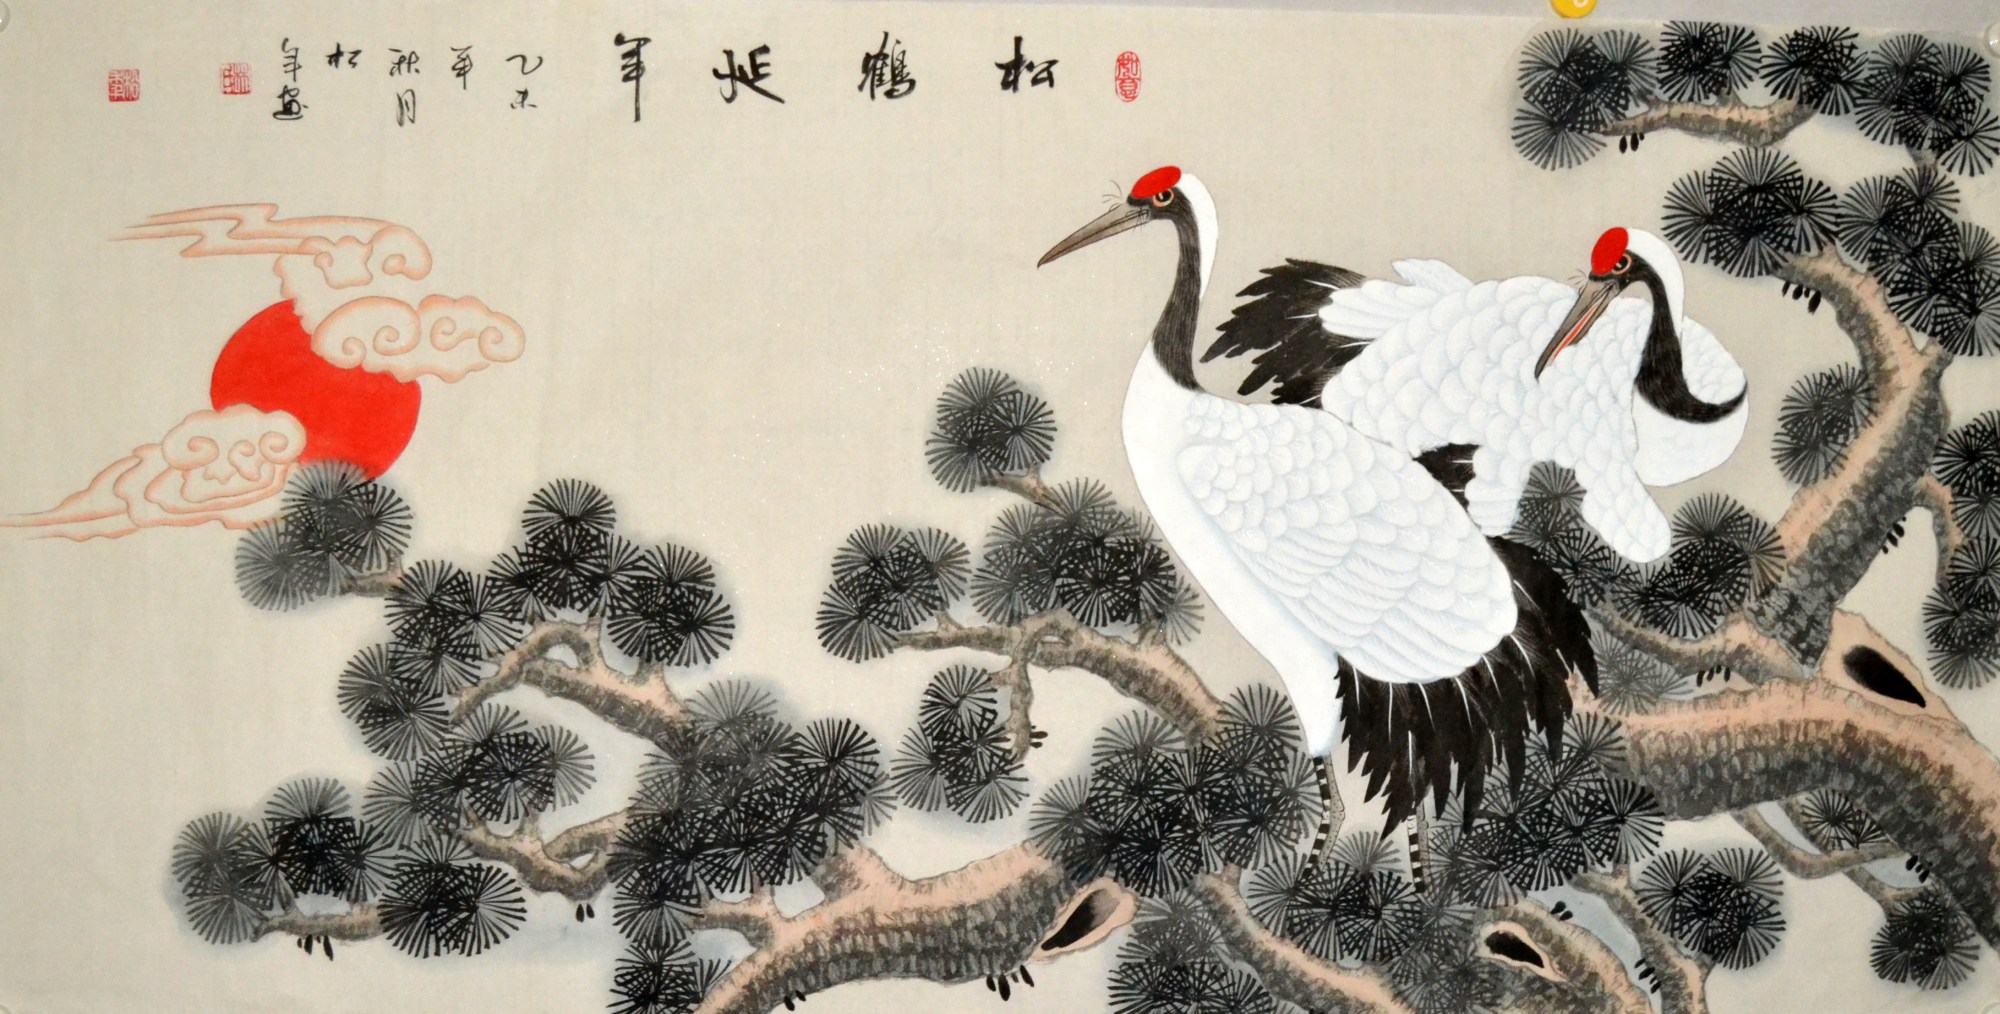 如意
松鹤延年
乙未
年
秋月
松
年画